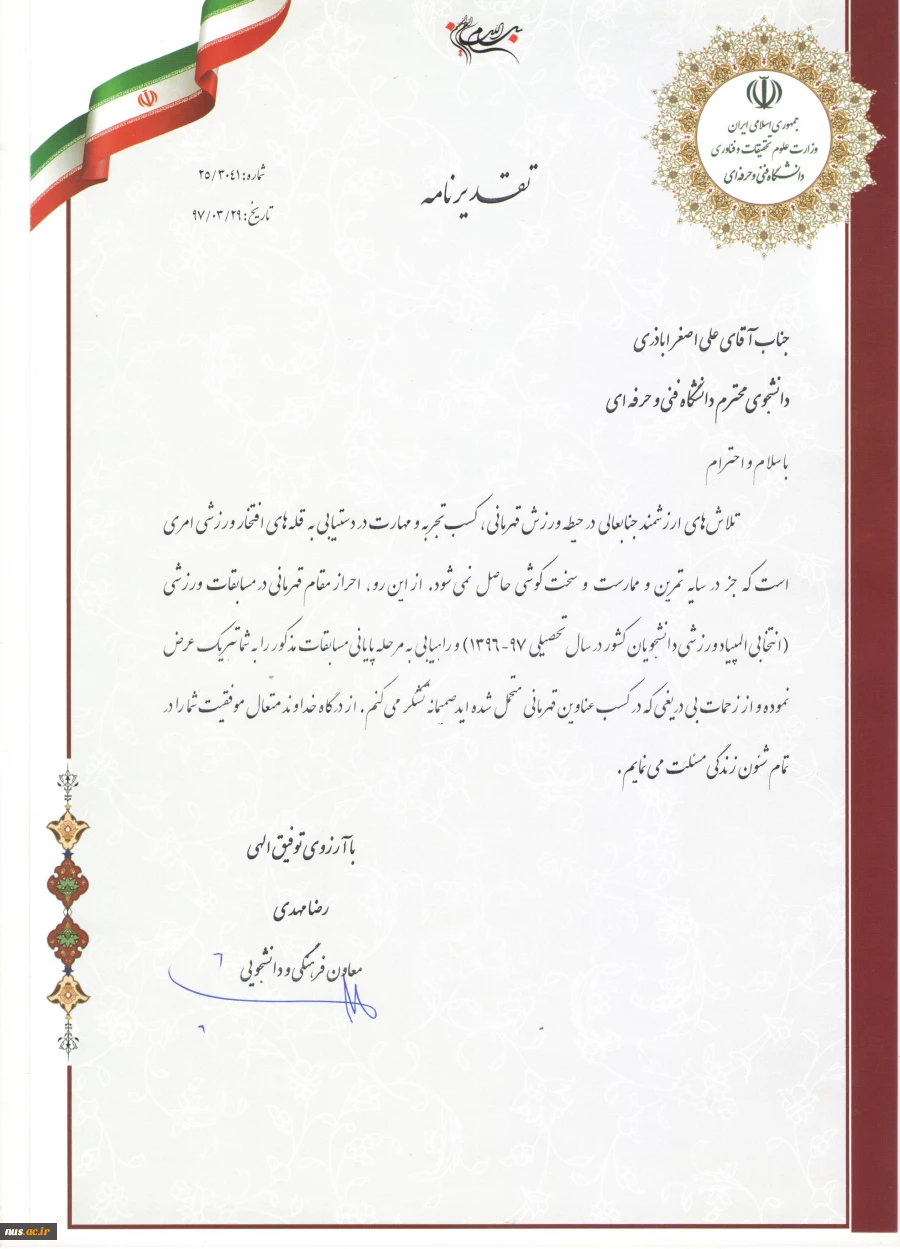 بسم الله الرحمن الرحیم
جمهوری اسلامی ایران
وزارت علوم تحقیقات و فناوری
دانشگاه فنی و حرفه ای
شماره: ۲۵/۳۰۴۱
تاریخ: ۹۷/۰۳/۲۹
تقدیرنامه
جناب آقای علی اصغر اباذری
دانشجوی محترم دانشگاه فنی و حرفه ای
باسلام و احترام
تلاش های ارزشمند جنابعالی در حیطه ورزش قهرمانی، کسب تجربه و مهارت در دستیابی به قله های افتخار ورزشی امری
است که جز در سایه تمرین و ممارست و سخت کوشی حاصل نمی شود. از این رو، احراز مقام قهرمانی در مسابقات ورزشی
(انتخابی المپیاد ورزشی دانشجویان کشور در سال تحصیلی ۹۷-۱۳۹۶) و راهیابی به مرحله پایانی مسابقات مذکور را به شما تبریک عرض
نموده و از زحمات بی دریغی که در کسب عناوین قهرمانی متحمل شده اید صمیمانه تشکر می کنم. از درگاه خداوند متعال موفقیت شما را در
تمام شئون زندگی مسئلت می نمایم.
با آرزوی توفیق الهی
رضا مهدی
معاون فرهنگی و دانشجویی
nus.ac.ir